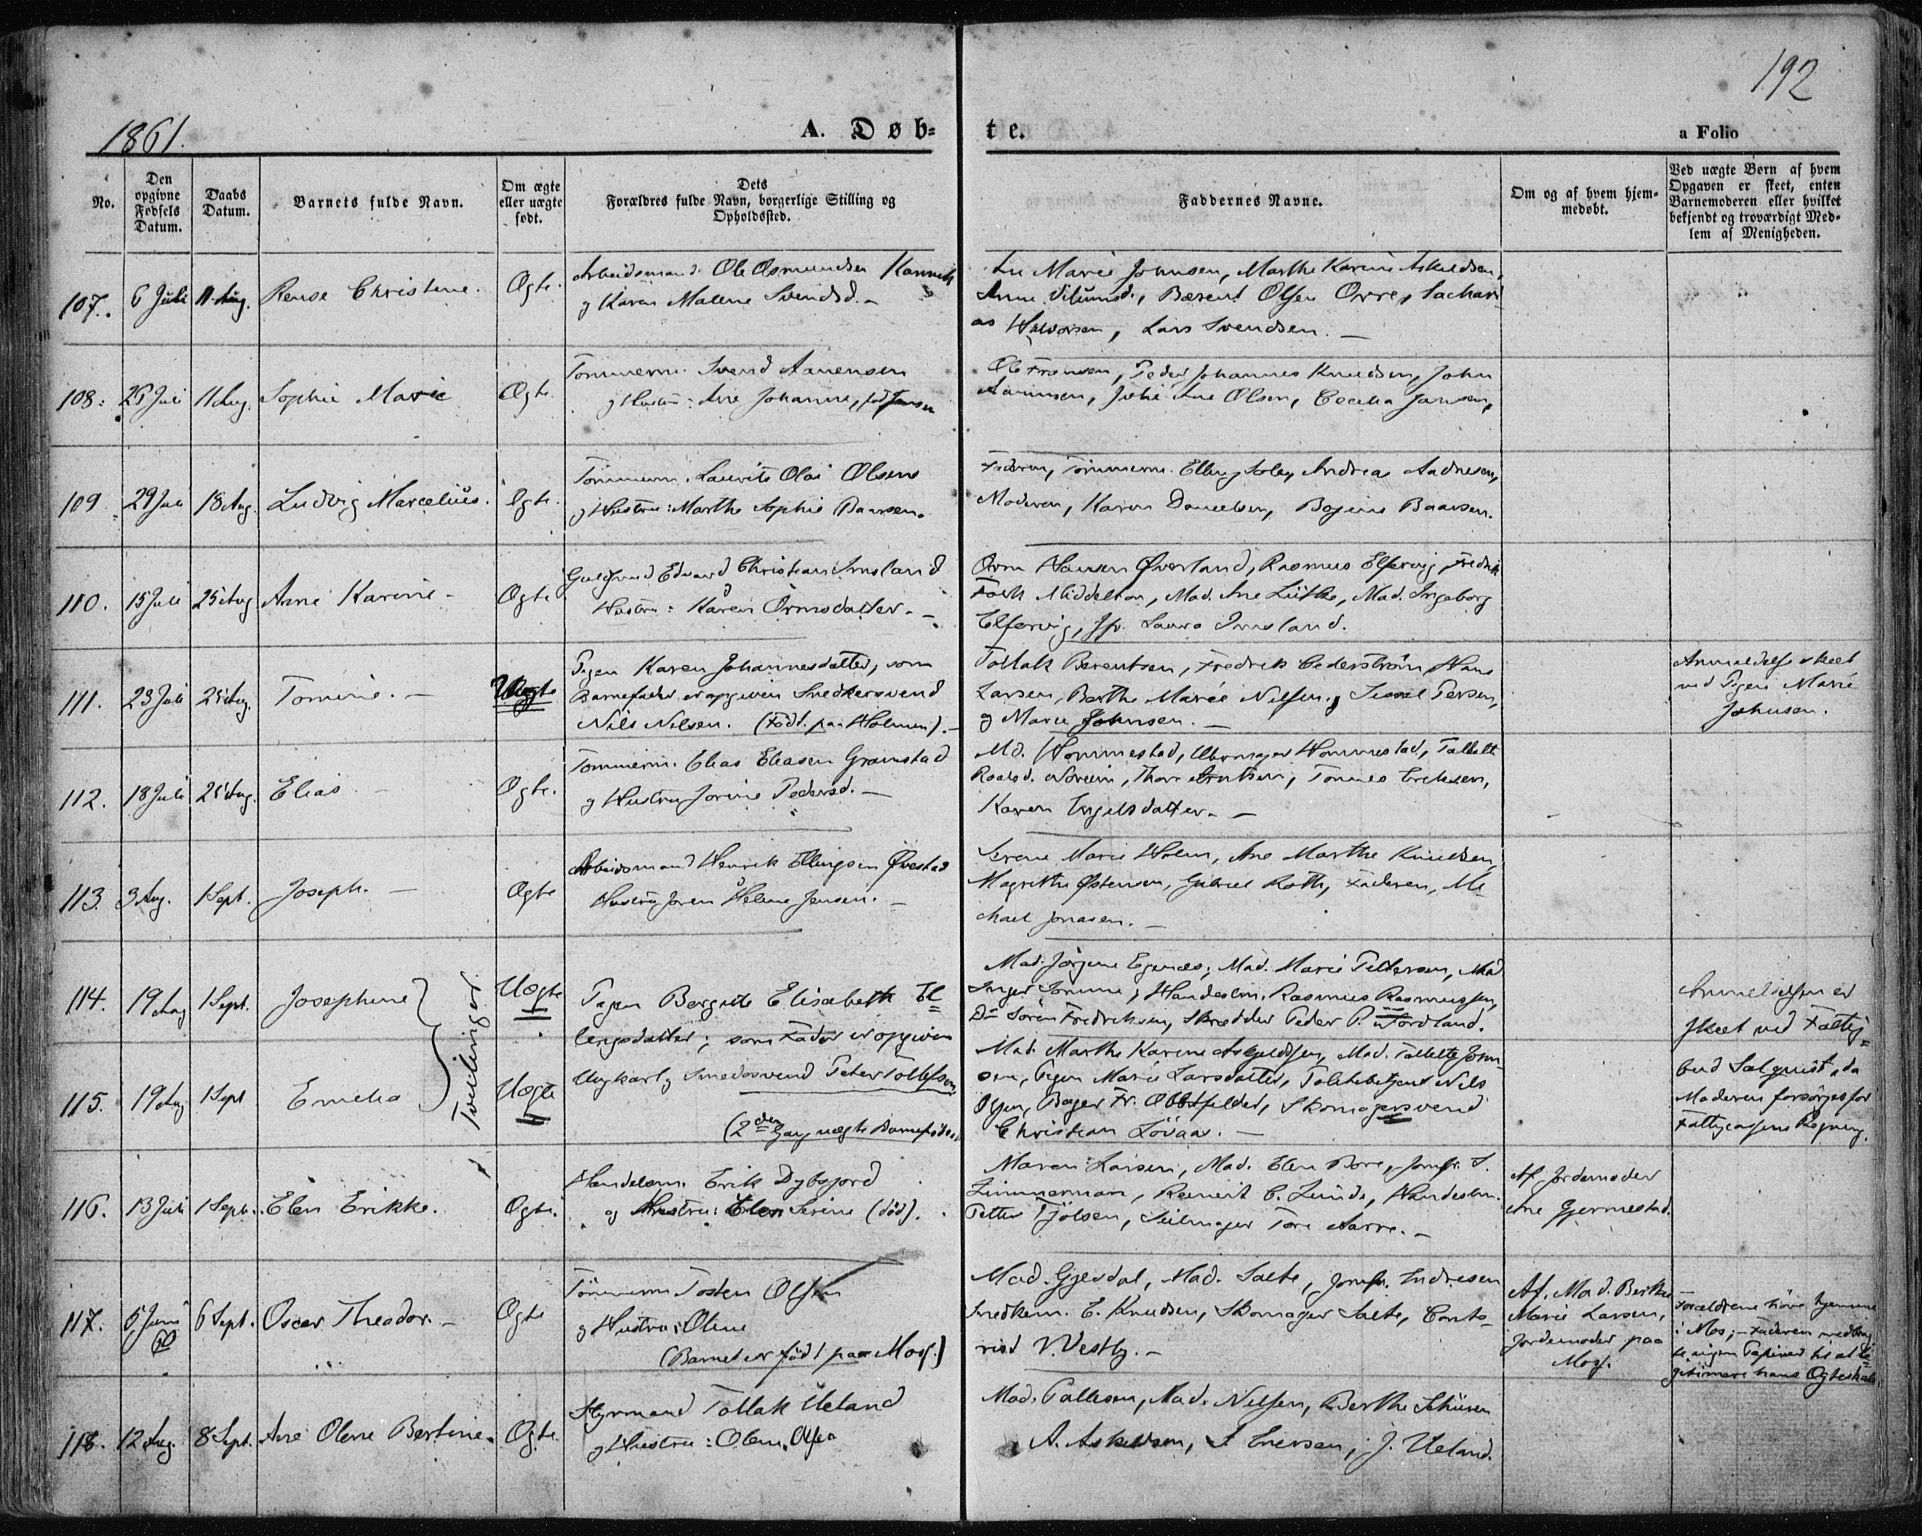 192
1861.
A. Døb-
te.
a Folio
No.
Den opgivne Fødsels Datum.
Daabs Datum.
Barnets fulde Navn.
Om ægte eller uægte født.
Dets Forældres fulde Navn, borgerlige Stilling og Opholdssted.
Faddernes Navne.
Om og af hvem hjem-
medøbt.
Ved uægte Børn af hvem
Opgaven er skeet, enten
Barnemoderen eller hvilket
bekjendt og troværdigt Med-
lem af Menigheden.
107. 6 Juli 11 Aug. Christine. Ægte.
Arbeidsmand Ole Osmundsen
og Karen Malene Svendsd.
Marie Johnsen, Marthe Karine Askeldsen,
Anne Bærent Olsen Orre, Sachari
as Halvorsen, Lars Svendsen.
108. 26 Juli 11 Aug. Sophie Marie Ægte
Tømmerm. Svend Aanensen
og Hustru: Ane Johanne, fød Jansen
Ole Fransen, Peder Johannes Knudsen, John
Aanensen, Ane Olsen, Cecilia Jansen,
109. 29 Juli 18 Aug. Ludvig Marcelius. Ægte.
Tømmerm. Laurits Olai Olsen
og Hustru: Marthe Sophie Baarsen.
Faderen, Tømmerm. Andreas Andresen,
Moderen, Karen Danielsen, Baarsen.
110. 15 Juli 25 Aug. Anne Karine Ægte
Guldsmed Edvard Christian Imsland
Hustru: Karen Ormsdatter.
Orm Hansen Øverland, Rasmus Elfervig, Fredrik
Middelton, Mad. Ane Lütke, Mad. Ingeborg
Elfervig, Jfr. Laura Imsland.
111. 23 Juli 25 Aug. Tomine. Uægte
Pigen Karen Johannesdatter, som
Barnefader er opgiven Snedkersvend
Nils Nilsen. (Født paa Holmen).
Tollak Berentsen, Fredrik Cederstrøm, Hans
Larsen, Berthe Marie Nilsen, Sissel Persen,
og Marie Johnsen.
Anmeldelse skeet
ved Pigen Marie
Johnsen.
112. 18 Juli 25 Aug. Elias Ægte.
Tømmerm. Elias Eliasen Gramstad
og Hustru Jorine Pedersd.
Md. Hommestad, Uhrmager Hommestad,
Thore Tønnes Ericksen,
Karen Engelsdatter.
113. 3 Aug. 1 Sept. Joseph. Ægte
Arbeidsmand Henrik Ellingsen Øvestad
Hustru Joren Helene Jensen.
Serene Marie Holm, Ane Marthe Knudsen,
Magrethe Østensen, Gabriel Roth, Faderen, Mi
chael Jonasen.
114. 19 Aug 1 Sept. Josephine Uægte
Tvillinger.
Pigen Bergite Elisabeth El=
lingsdatter; som Fader er opgiven
Mad. Jørgine Egenæs, Mad. Marie Pettersen, Mad
Inger Rasmus Rasmussen,
Do Søren Fredriksen, Skrædder Peder P. Fordland.
Anmeldelsen er
skeet ved Fattig=
115. 19 Aug 1 Sept Emelia Uægte
Ungkarl og Smedesvend Peter Tollefsen
(2den Gang uægte Barnefødsel)
Mad. Marthe Karine Askjeldsen, Mad. Tollette John
sen, Pigen Marie Larsdatter, Politibetjent Nils
Olsen, Bager Fr. Obstfelder, Skomagersvend
Christian Lövaas.
bud Salquist, da
Moderen forsørges for
Fattigcassens Regning.
116. 13 Juli 1 Sept. Elen Erikke. Ægte.
Handelsm. Erik Dybsjord
og Hustru: Elen Serine (død).
Maren Larsen, Mad. Elen Bore, Jomfr. S.
Zimmerman, Reinert C. Lunde, Handelsm.
Petter Fjölsen, Seilmager Tore Aarre.
Af Jordemoder
Ane Gjermestad.
117. 5 Juni 60 6 Sept. Oscar Theodor. Ægte
Tömmerm. Tosten Olsen
og Hustru: Oline
(Barnet er født paa Moss.)
Mad. Gjesdal, Mad. Salte, Jomfr. Endresen
Snedkerm. E. Knudsen, Skomager Salte, Conto-
rist V. Vestby.
Af Mad. Berthe
Marie Larsen,
Jordemoder paa
Moss.
Forældrene høre hjemme
i Mos; Faderen medbrag
te ingen Papirer til at le=
gitimere hans Ægteskab.
118. 12 Aug. 8 Sept. Ane Olene Bertine. Ægte
Styrmand Tollak Ueland
og Hustru: Olene Olsen
Mad. Pallesen, Mad. Nilsen, Berthe
A. Askeldsen, S. Enersen, J. Ueland.